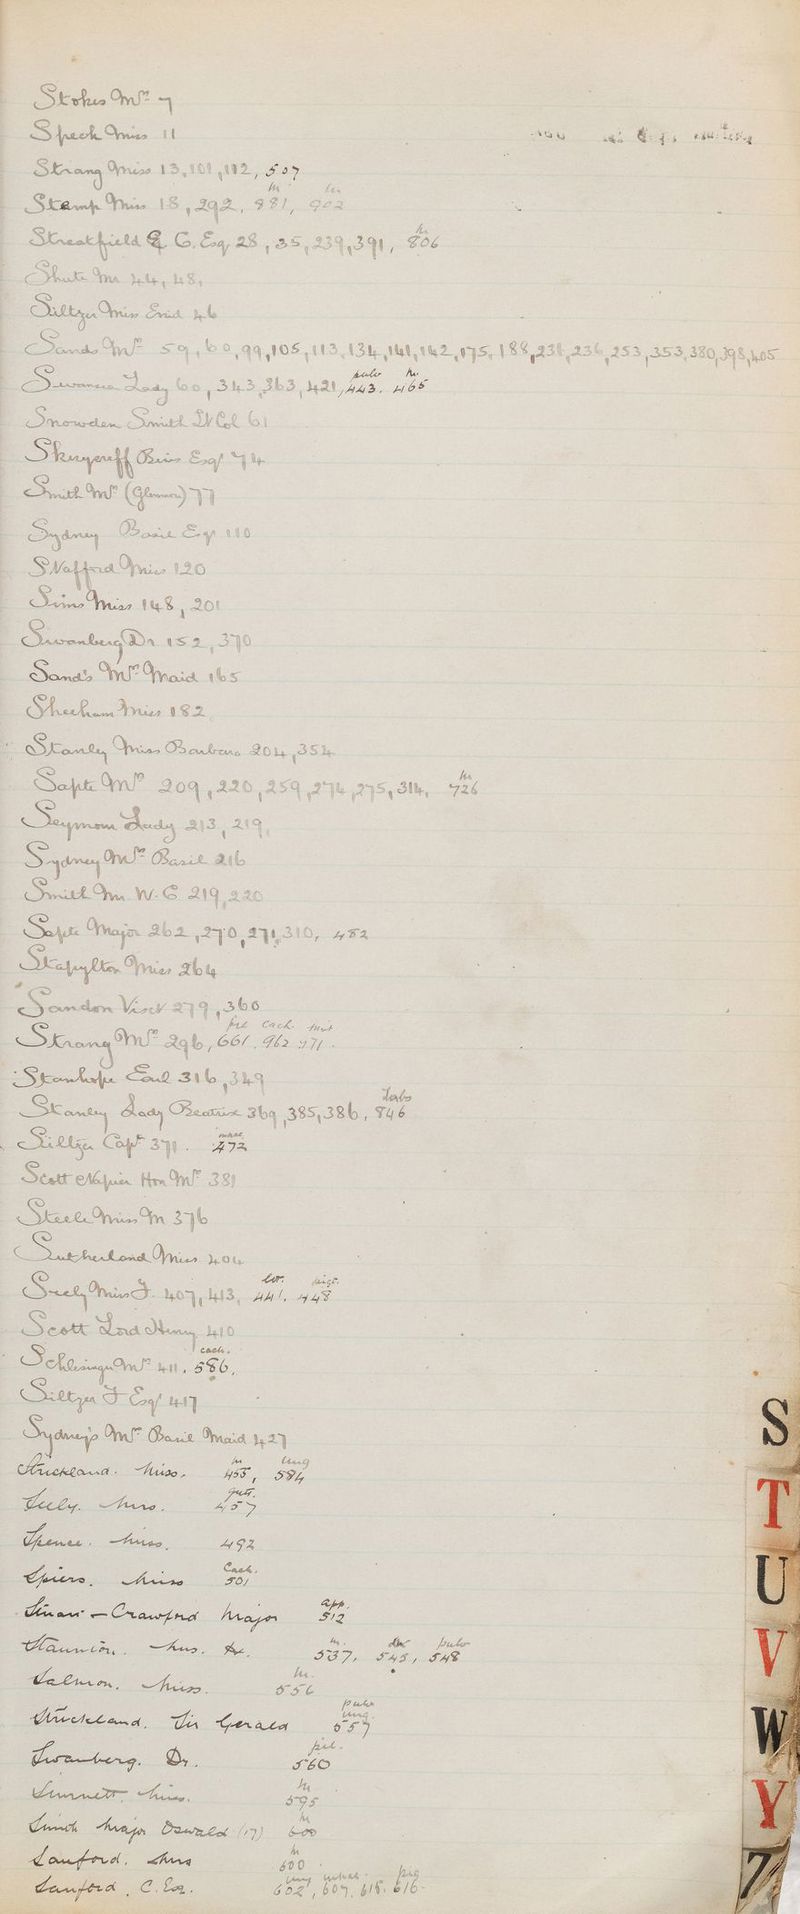 Stokes Mrs 7
Speck Miss 11
Strang Miss 13, 101, 112, 507
Stamp Miss 18, 292, 881, 902
Streatfield G. C. Esq 28, 35, 239, 391, 806
Shute Mr 44, 48,
Siltzer Miss Enid 46
Sands Mrs 59, 60, 99, 105, 113, 134, 141, 142, 175, 188, 231, 236, 253, 353, 380, 398, 405
Swansea Lady 60, 343, 363, 421, 443, 465
Snowden Smith Lt Col 61
Esqr 74
Smith Mrs 77
Sydney Basil Esqr 110
Stafford Miss 120
Sims Miss 148, 201
Swanberg Dr 152, 370
Sand's Mrs Maid 165
Sheeham Miss 182
Stanley Miss Barbara 204, 354
Sapte Mrs 209, 220, 259, 274, 275, 314, 726
Seymour Lady 213, 219,
Sydney Mrs Basil 216
Smith Mr W. C. 219, 220
Sapte Major 262, 270, 271, 310, 482
Stapylton Miss 264
Sandon Visct 279, 360
Strang Mrs 296, 661, 962
Stanhope Earl 316, 349
Stanley Lady Beatrix 369, 385, 386, 846
Siltzer Capt 371. 472
Scott Napier Hon Mrs 381
Steele Miss M 376
Sutherland Miss 404
Seely Miss J. 407, 413, 441, 448
Scott Lord Henry 410
cach.
Schlesinger Mrs 411. 586.
Siltzer J Esqr 417
Sydney's Mrs Basil Maid 427
Strickland. Miss. 455, 584
Seely. Mrs. 457
Spence. Miss. 492
Cach.
Spiers. Miss 501
app.
Stuart-Crawford Major 512
Staunton. Mrs. 537, 545, 548
Salmon. Miss. 556
Strickland. Sir Gerald 557
pil.
Swanberg. Dr. 560
Sinnett. Miss. 595
Smith Major Oswald (17) 600
Sanford. Mrs 600
Sanford. C. Esq. 602, 607, 615, 616
S
T
U
V
W
Y
Z